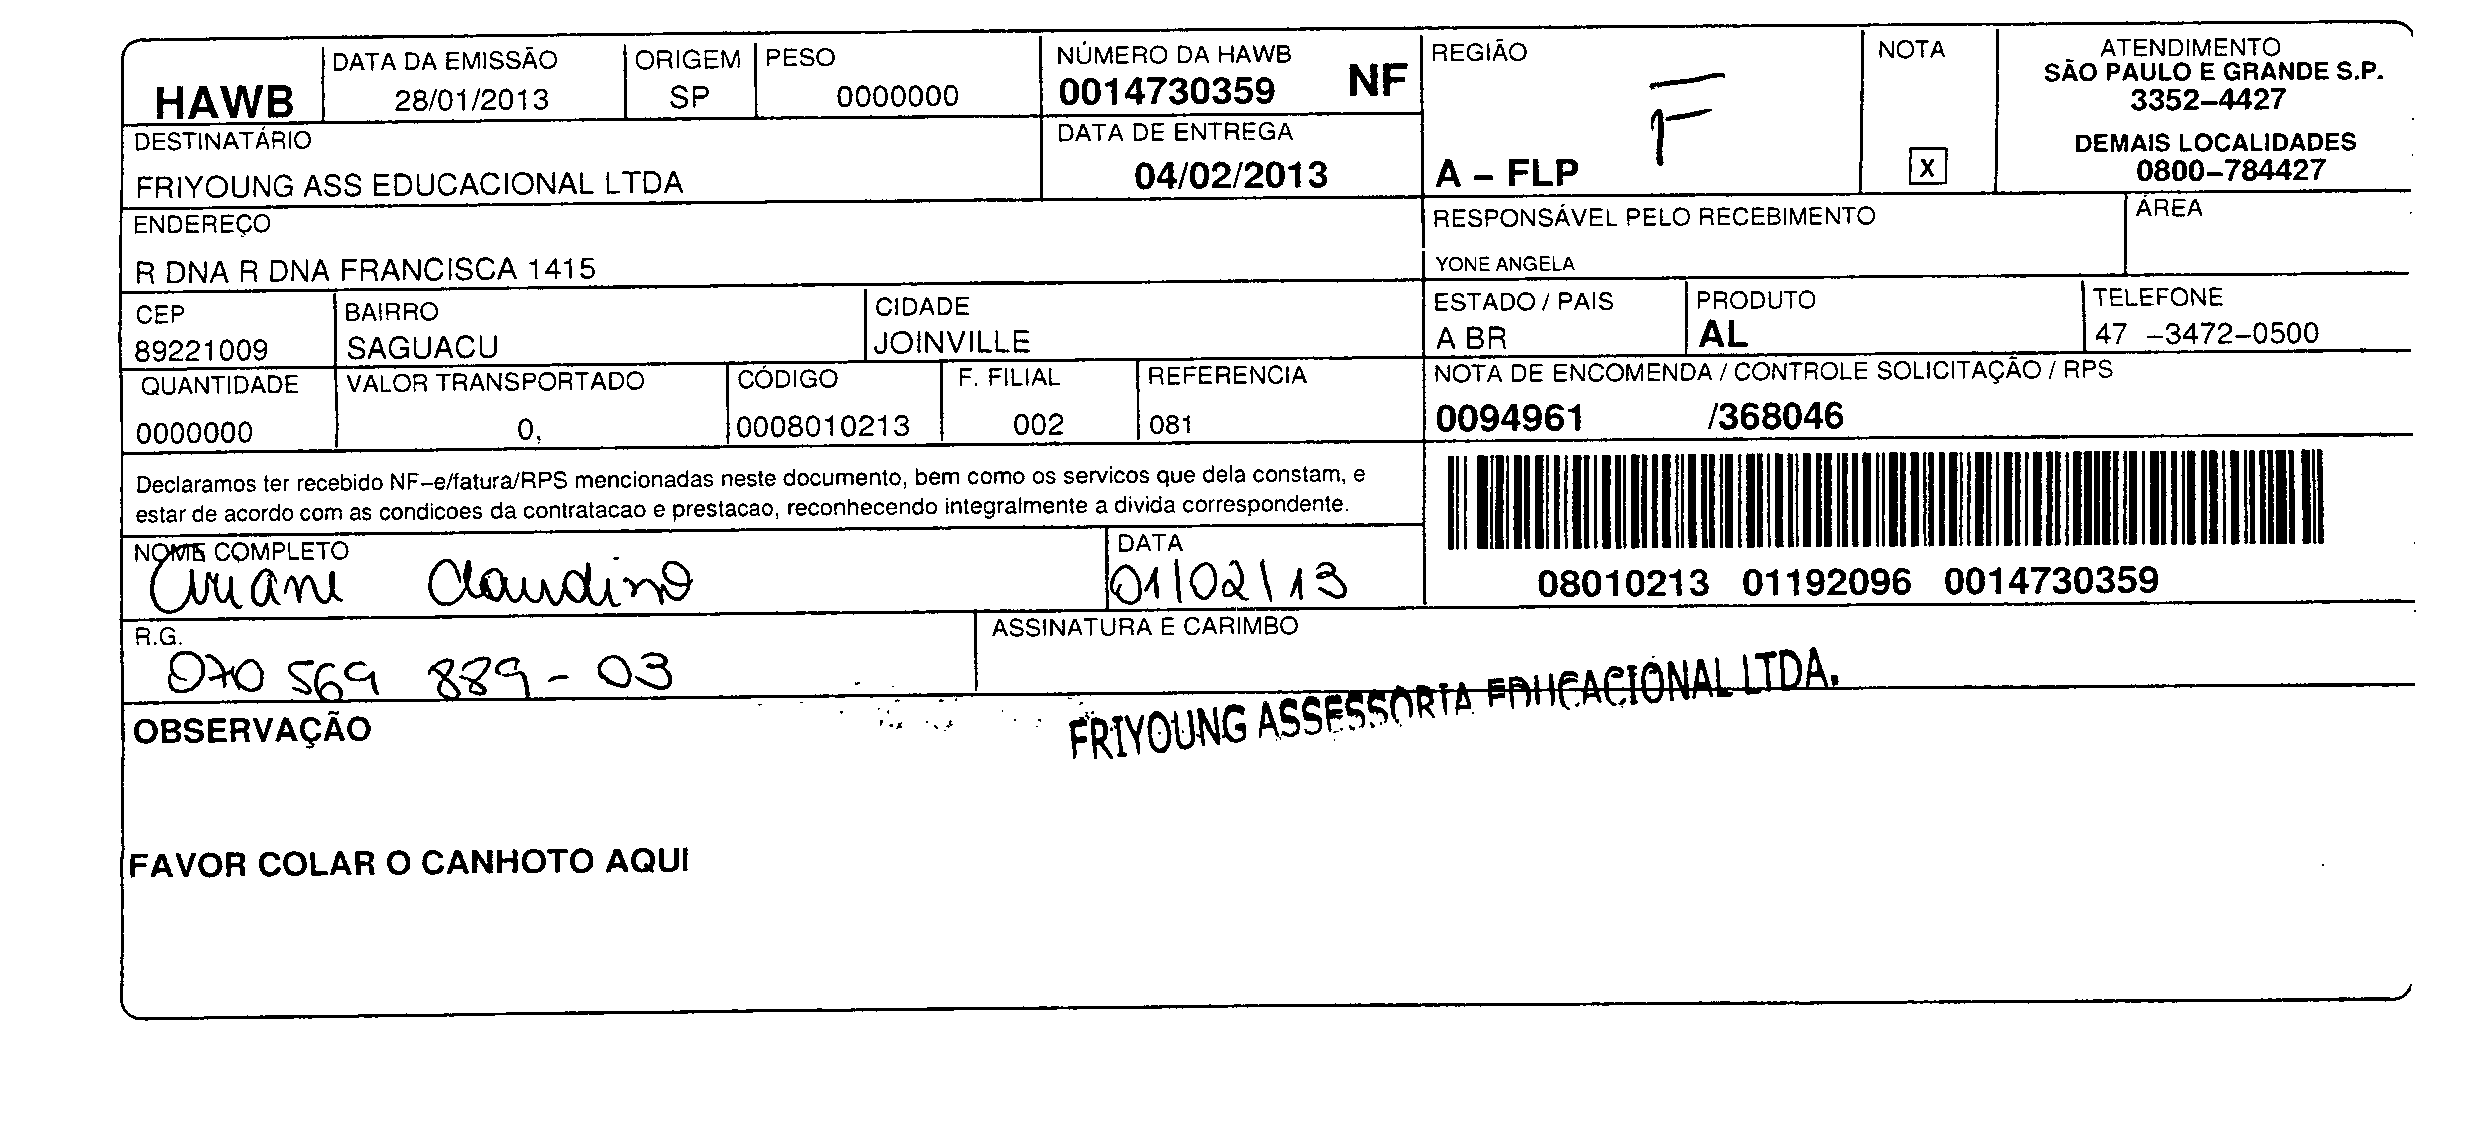 HAWB
DATA DA EMISSÃO
28/01/2013
ORIGEM
SP
PESO
0000000
NÚMERO DA HAWB
0014730359 NF
REGIÃO
A – FLP
NOTA
X
ATENDIMENTO
SÃO PAULO E GRANDE S.P.
3352–4427
DEMAIS LOCALIDADES
0800–784427
DESTINATÁRIO
FRIYOUNG ASS EDUCACIONAL LTDA
DATA DE ENTREGA
04/02/2013
ENDEREÇO
R DNA R DNA FRANCISCA 1415
RESPONSÁVEL PELO RECEBIMENTO
YONE ANGELA
ÁREA
CEP
89221009
BAIRRO
SAGUACU
CIDADE
JOINVILLE
ESTADO / PAIS
A BR
PRODUTO
AL
TELEFONE
47 –3472–0500
QUANTIDADE
0000000
VALOR TRANSPORTADO
0,
CÓDIGO
0008010213
F. FILIAL
002
REFERENCIA
081
NOTA DE ENCOMENDA / CONTROLE SOLICITAÇÃO / RPS
0094961 /368046
Declaramos ter recebido NF–e/fatura/RPS mencionadas neste documento, bem como os servicos que dela constam, e
estar de acordo com as condicoes da contratacao e prestacao, reconhecendo integralmente a divida correspondente.
08010213 01192096 0014730359
NOME COMPLETO
Claudino
DATA
01/02/13
R.G.
070 569 889-03
ASSINATURA E CARIMBO
FRIYOUNG ASSESSORIA EDUCACIONAL LTDA.
OBSERVAÇÃO
FAVOR COLAR O CANHOTO AQUI